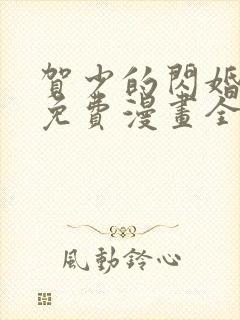 賀少的閃婚
免費漫畫全
風動鈴心